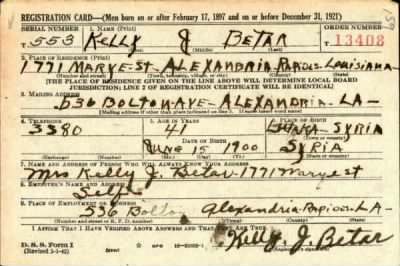 REGISTRATION CARD—(Men born on or after February 17, 1897 and on or before December 31, 1921)
SERIAL NUMBER 1. NAME (Print) ORDER NUMBER
T 553 Kelly J Betar 13408
(First) (Middle) (Last)
2. PLACE OF RESIDENCE (Print)
1771 MARYE ST. ALEXANDRIA RAPIDES LOUISIANA
(Number and street) (Town, township, village, or city) (County) (State)
[THE PLACE OF RESIDENCE GIVEN ON THE LINE ABOVE WILL DETERMINE LOCAL BOARD
JURISDICTION; LINE 2 OF REGISTRATION CERTIFICATE WILL BE IDENTICAL]
3. MAILING ADDRESS
536 BOLTON AVE - ALEXANDRIA - LA -
4. TELEPHONE 5. AGE IN YEARS 6. PLACE OF BIRTH
3380 41 SYRIA
DATE OF BIRTH
15 1900 SYRIA
7. NAME AND ADDRESS OF PERSON WHO WILL ALWAYS KNOW YOUR ADDRESS
Mrs Kelly J. Betar - 1771 Marye st
8. EMPLOYER'S NAME AND ADDRESS
Self
9. PLACE OF EMPLOYMENT OR BUSINESS
536 Bolton Alexandria - Rapides - LA -
(Number and street or R. F. D. number) (Town) (County) (State)
I AFFIRM THAT I HAVE VERIFIED ABOVE ANSWERS AND THAT THEY ARE TRUE.
D. S. S. Form 1
Kelly J. Betar